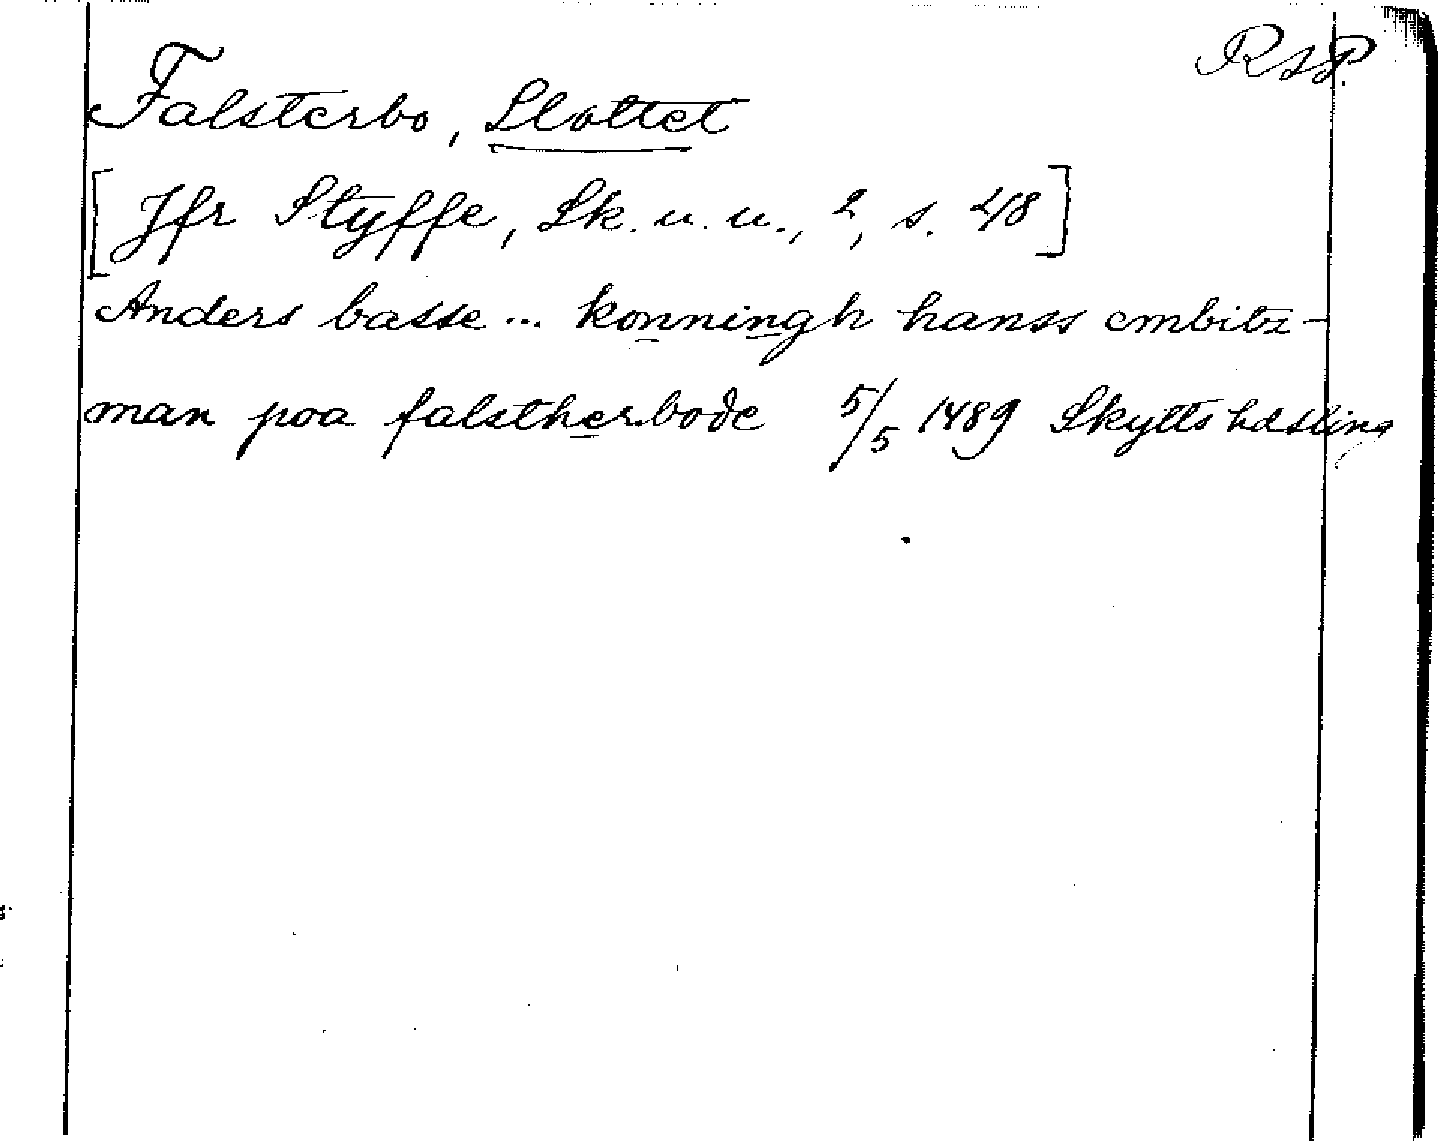 RSP.
Falsterbo, Slottet
[Jfr Styffe, Sk. u. u., 2, s. 48]
Anders basse ... konningh hanss embitz-
man poa falstherbode 5/5 1489 Skytts hdsting